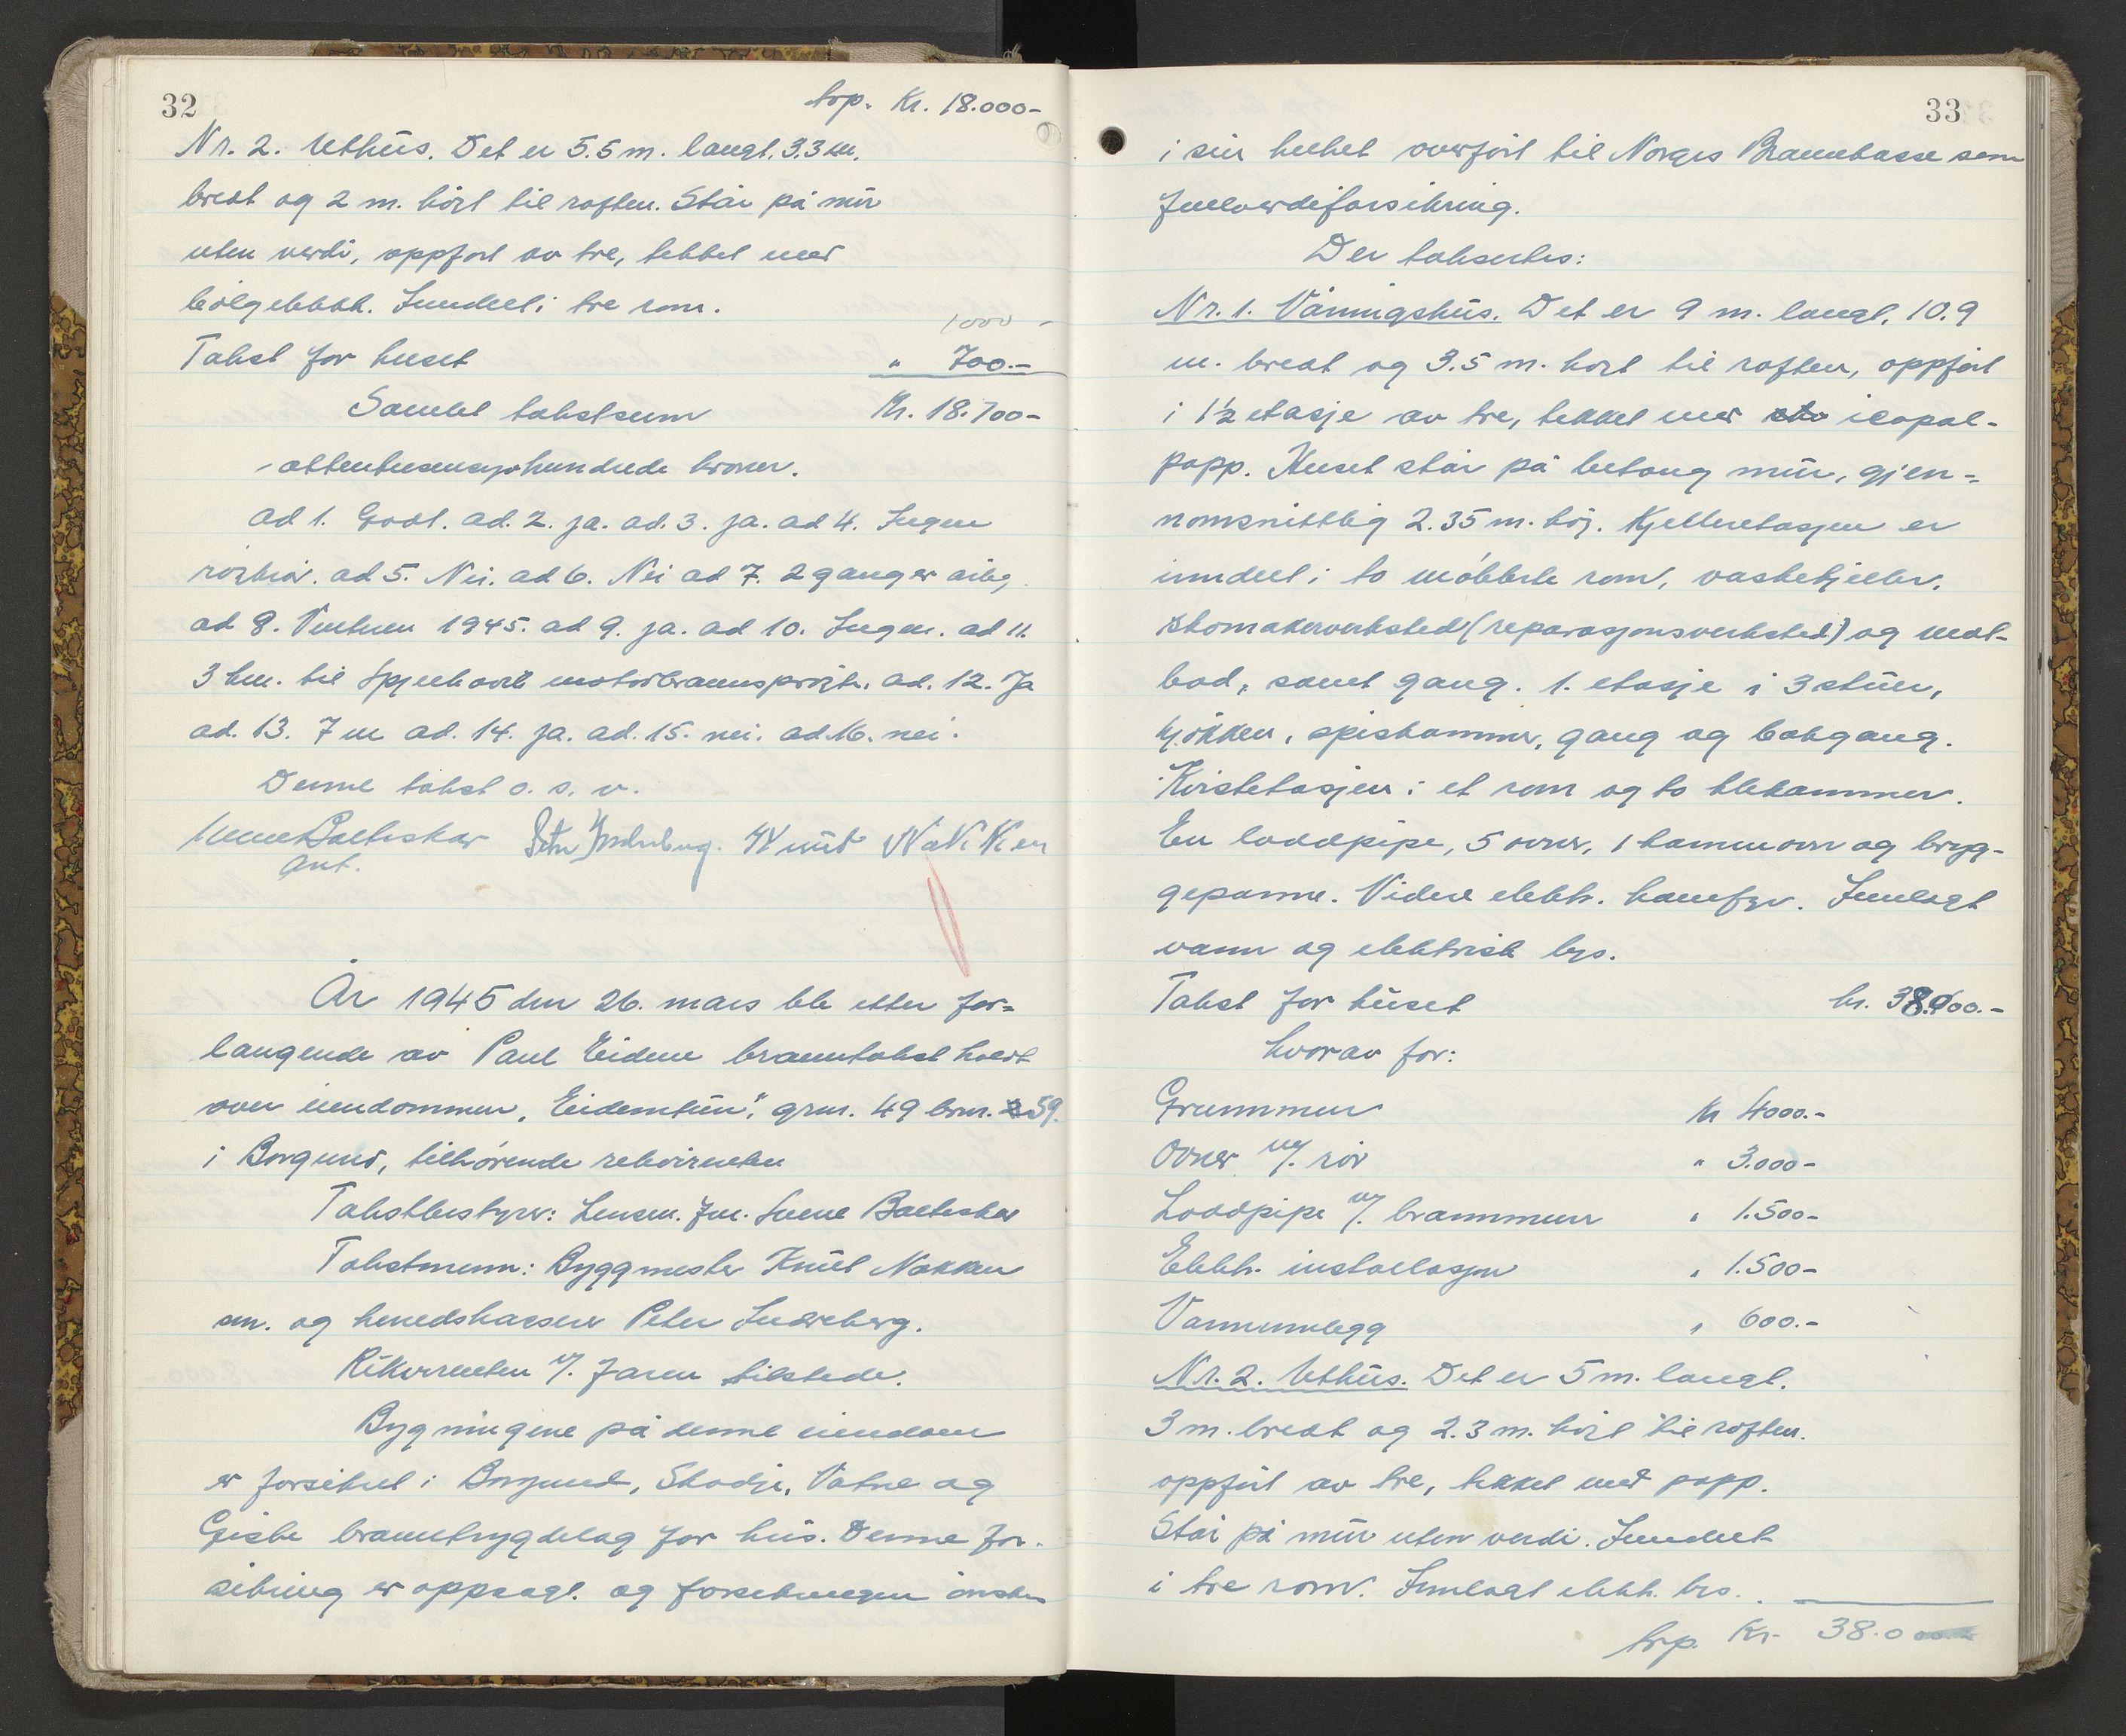 32
trp. Kr. 18.000-
Nr. 2. Uthus. Det er 5.5 m. langt, 3.3 m.
bredt og 2 m. högt til raften. Står på mur
uten verdi, oppfört av tre, tekket med
bölgeblikk. Inndelt i tre rom.
1000 -
Takst for huset " 700.-
Samlet takstsum Kr. 18.700-
-attentusensyvhundrede kroner.
ad 1. Godt. ad. 2. ja. ad. 3. ja. ad 4. Ingen
ad 5. Nei. ad 6. Nei ad 7. 2 ganger årlig,
ad 8. Vinteren 1945. ad 9. ja. ad 10. Ingen. ad 11.
3 km. til Spjelkavik motorbrannsprøjte. ad. 12. Ja
ad. 13. 7 m ad. 14. ja. ad. 15. nei. ad. 16. nei.
Denne takst o. s. v.
Peter Indreberg. Knut Nakken
År 1945 den 26. mars ble etter for-
langende av Paul Eidem branntakst holdt
over eiendommen, "Eidemtun", grnr. 49 brnr. 59.
i Borgund, tilhörende rekvirenten
Takstbestyrer: Lensm. fm.
Takstmenn: Byggmester Knut Nakken
sen. og herredskasserer Peter Indreberg.
Rekvirenten v/. faren tilstede.
Bygningene på denne eiendom
er forsikret i Borgund, Skodje, Vatne og
Giske branntrygdelag for hus. Denne for-
sikring er oppsagt og forsikringen önskes
33
i sin helhet overfört til Norges Brannkasse som
fullverdiforsikring.
Der takseres:
Nr. 1. Våningshus. Det er 9 m. langt, 10.9
m. bredt og 3.5 m. högt til raften, oppfört
i 1½ etasje av tre, tekket med icopal-
papp. Huset står på betong mur, gjen-
nomsnittlig 2.35 m. höj. Kjelleretasjen er
inndelt i to möblerte rom, vaskekjeller,
skomakerverksted (reparasjonsverksted) og mat-
bod, samt gang. 1. etasje i 3 stuer,
kjökken, spiskammer, gang og bakgang.
Kvistetasjen i et rom og to klekammer.
En loddpipe, 5 ovner, 1 kaminovn og bryg-
gepanne. Videre elektr. komfyr. Innlagt
vann og elektrisk lys.
Takst for huset kr. 38.000.-
hvorav for:
Grunnmur kr 4000.-
Ovner m/. rör " 3.000-
Loddpipe m/. brannmur " 1.500-
Elektr. installasjon " 1.500-
Vanninnlegg " 600.-
Nr. 2. Uthus. Det er 5 m. langt,
3 m. bredt og 2.3 m. högt til raften.
oppfört av tre, tekket med papp.
Står på mur uten verdi. Inndelt
i tre rom. Innlagt elektr. lys.
trp. Kr. 38.000